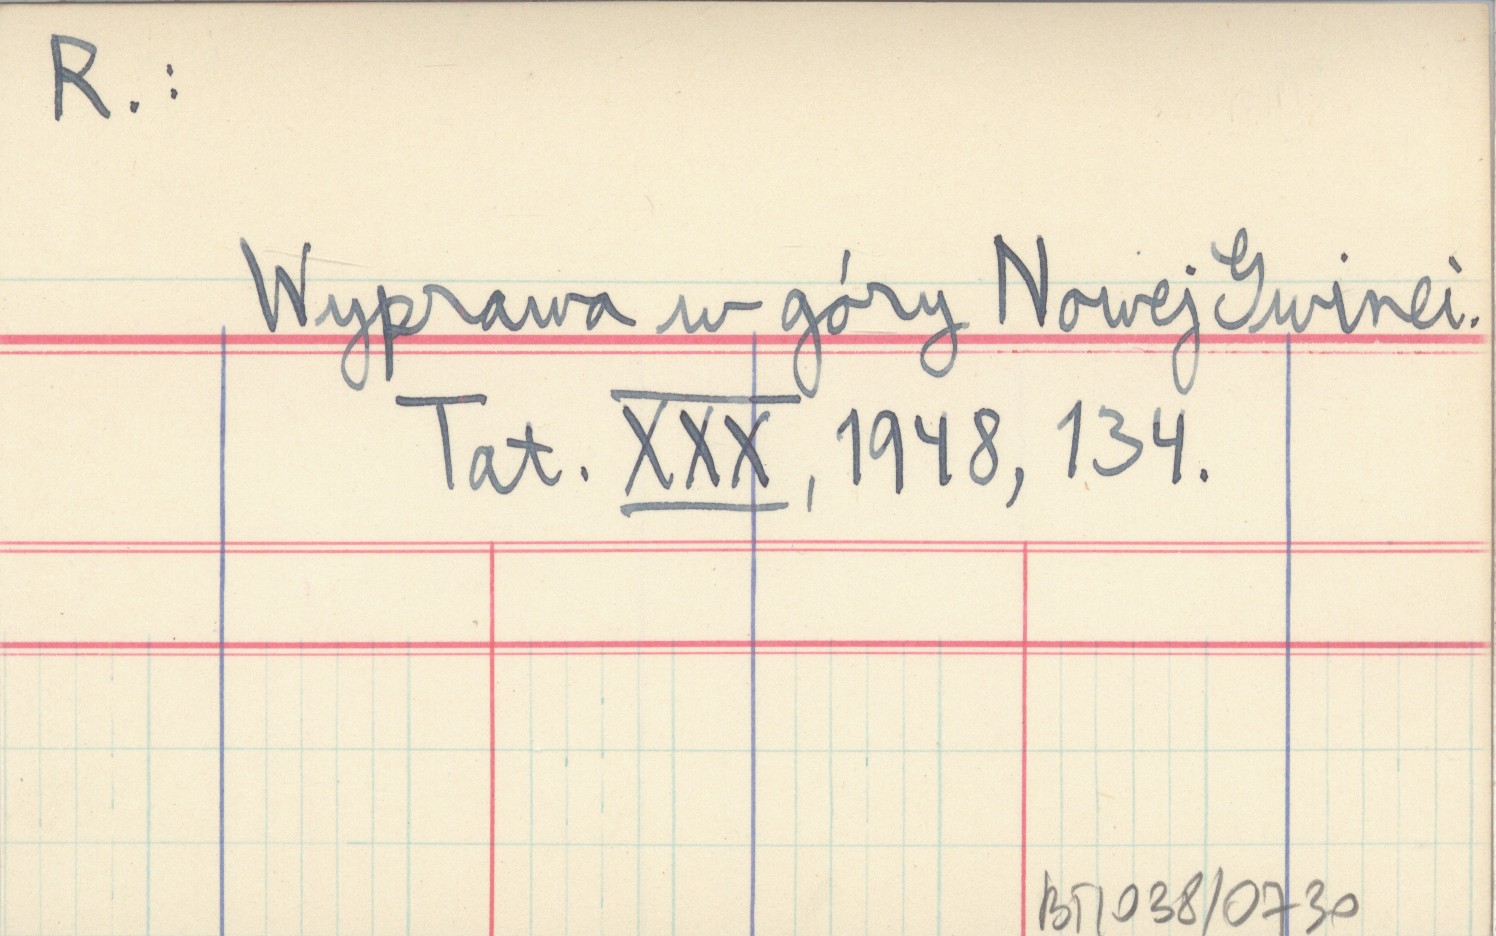 R.:
Wyprawa w góry Nowej Gwinei.
Tat. XXX, 1948, 134.
BT/038/0730